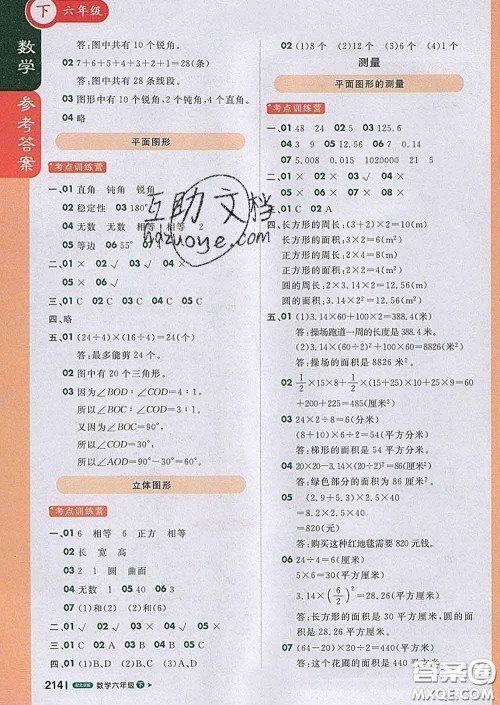 下 六年级
数学
参考答案
答:图中共有10个锐角。
02 7+6+5+4+3+2+1=28(条)
答:图中共有28条线段。
03 图形中有10个锐角,2个钝角,4个直角。
04 略
平面图形
考点训练营
一、01 直角 钝角 锐角
02 稳定性 03 180°
04 无数 无数 相等 相等 2
05 等边 06 55°
二、01 × 02 √ 03 × 04 √
05 × 06 ×
三、01 C 02 B 03 C 04 C 05 C
四、略
五、01 (24÷4)×(16÷4)=24(个)
答:最多能剪24个。
02 图中有20个三角形。
03 因为∠BOD:∠COD=4:1,
所以∠BOC:∠COD=3:1
又因为∠BOC=90°,
所以∠COD=30°,
所以∠AOD=90°-30°=60°
立体图形
考点训练营
一、01 6 相等 6 正方 相等
02 长 宽 高
03 2 1 圆 曲面
04 无数 1 05 40 06 3
07 (1)和(2) (1)和(2)
二、01 × 02 √ 03 √ 04 ×
05 ×
三、01 C 02 A 03 B 04 A 05 C
四、01 (1)B,D (2)A,C (3)A,D
214 数学六年级 下
02 (1)8个 (2)12个 (3)6个 (4)1个
测量
平面图形的测量
考点训练营
一、01 48 24 02 5 03 125.6
04 3 9 05 12.56 12.56
07 5.008 0.015 1020000 21 5
二、01 × 02 × 03 × 04 × 05 √
三、01 C 02 A
四、长方形的周长:(3+2)×2=10(m)
长方形的面积:3×2=6(m²)
正方形的周长:2×4=8(m)
正方形的面积:2×2=4(m²)
圆的周长:2×3.14×2=12.56(m)
圆的面积:3.14×2²=12.56(m²)
五、01 (1)3.14×60+100×2=388.4(m)
答:操场跑道一周的长度是388.4米。
(2)3.14×(60÷2)²+100×60=8826(m²)
答:操场的面积是8826平方米。
02 1/2×15×8+1/2×(15+25)×10+25×9=60
+200+225=485(厘米²)
03 24×2÷8=6(分米)
(6+12)×6÷2=54(平方分米)
答:梯形的面积是54平方分米。
04 20×20-3.14×(20÷2)²=86(厘米²)
答:绿色部分的面积是86平方厘米。
05 (5+5.2)×2.5×40
=8.2×2.5×40
=820(元)
答:购买这种红地毯需要820元。
06 24÷4=6(厘米)
5×6=30(平方厘米)
3.14×(6/2)²=28.26(平方厘米)
答:长方形的面积是30平方厘米,圆的面积是28.26平方厘米。
07 (64-20)×20÷2=440(平方米)
答:这个花圃的面积是440平方米。
互助文档
hgzuoye.com
答案圈
MXQE.COM